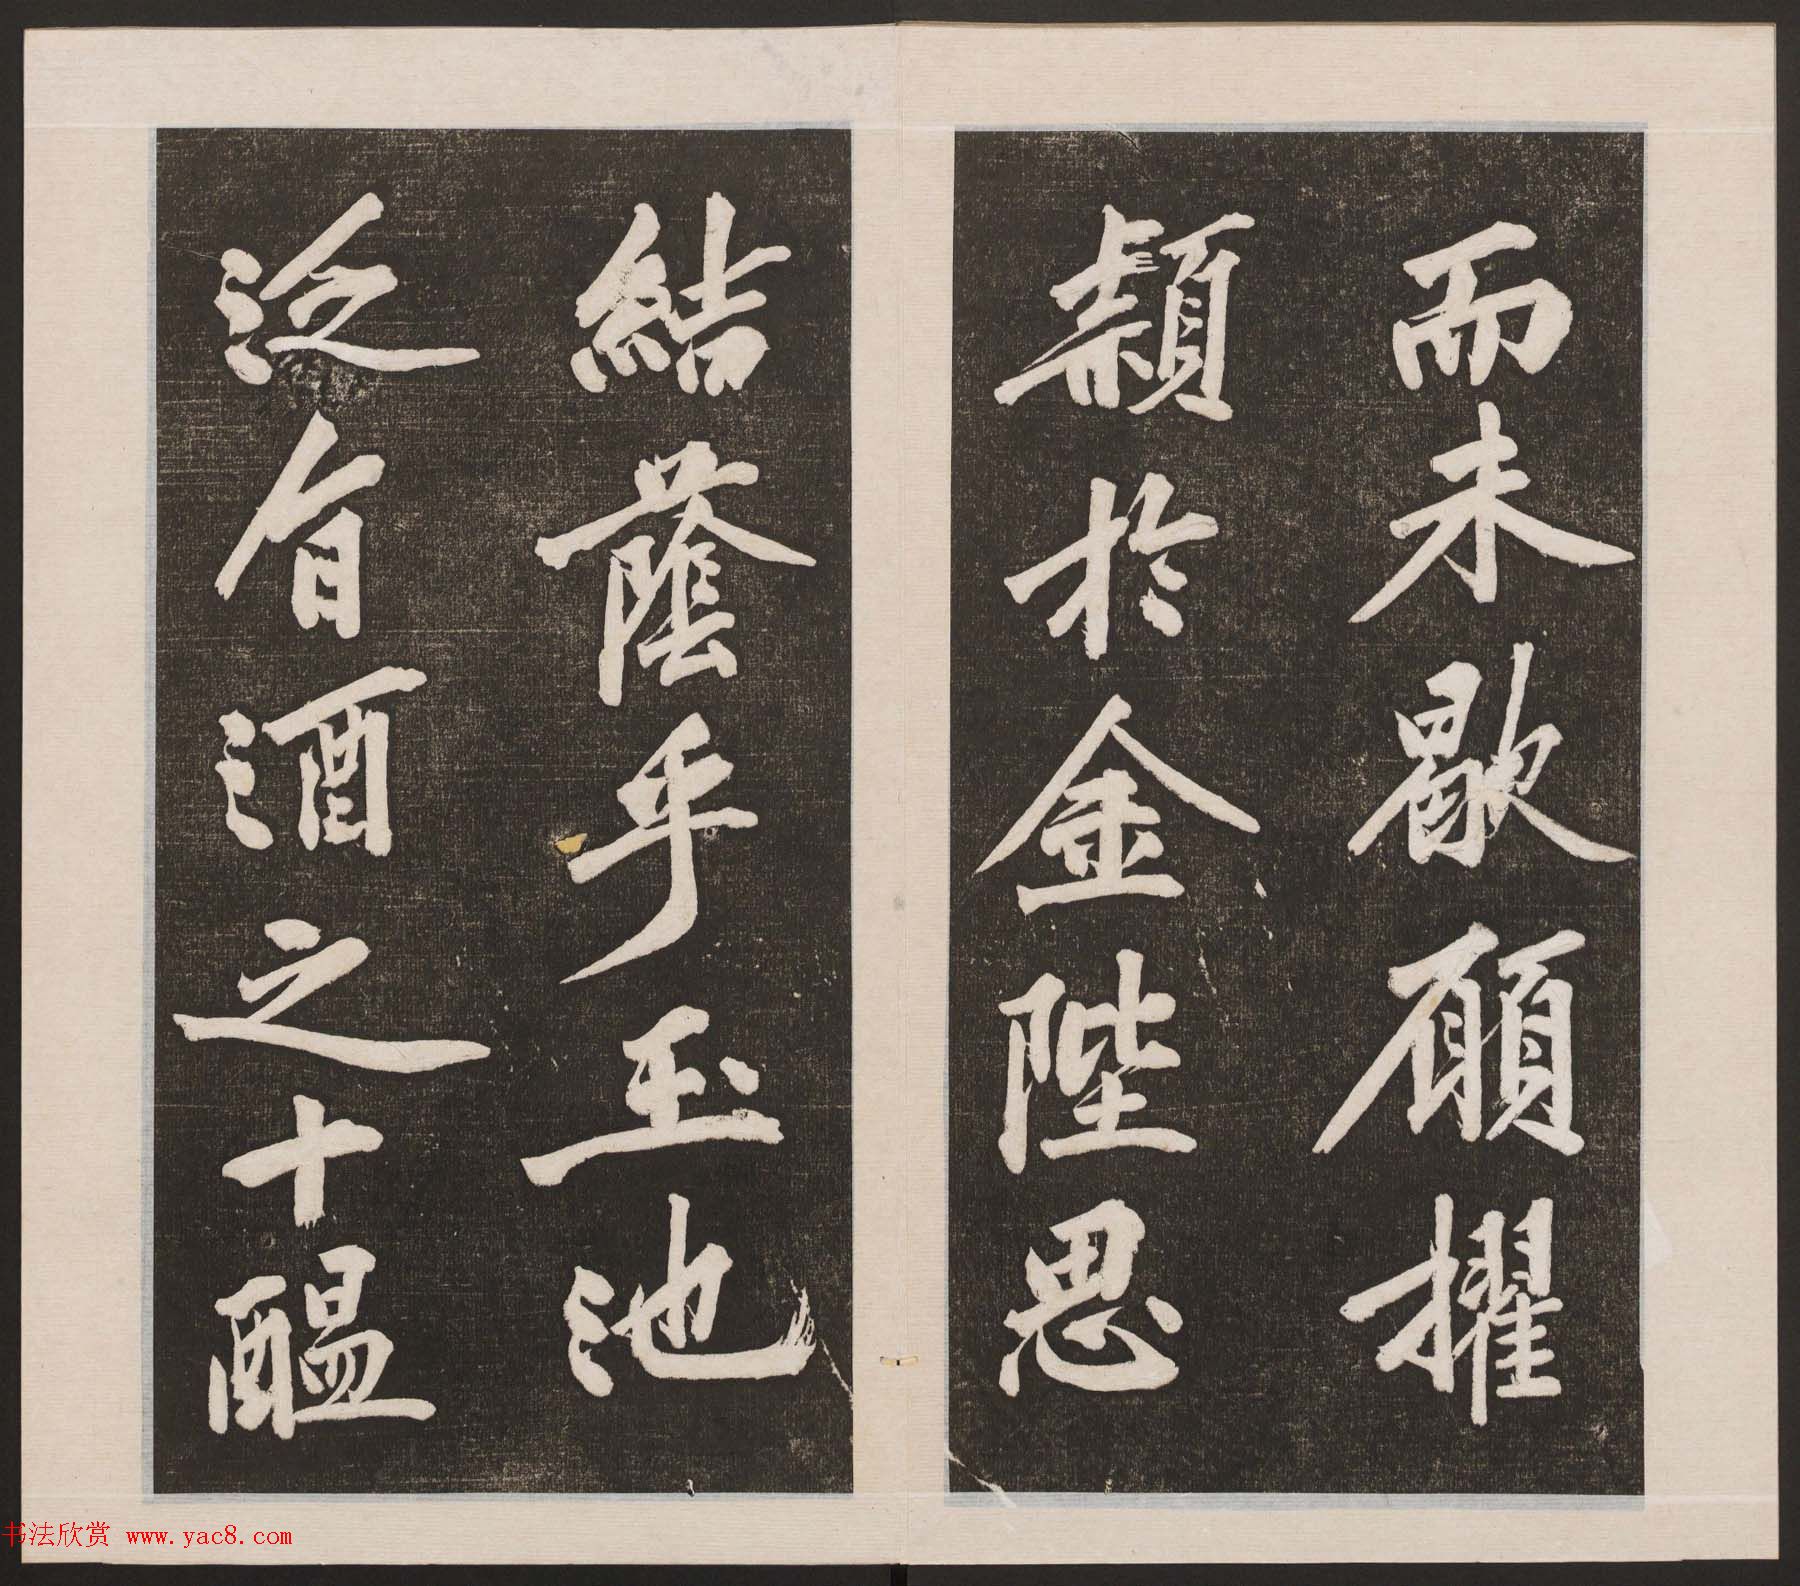 而未歇願擢
穎於金陛思
結蔭乎玉池
泛旨酒之十醖
书法欣赏 www.yac8.com